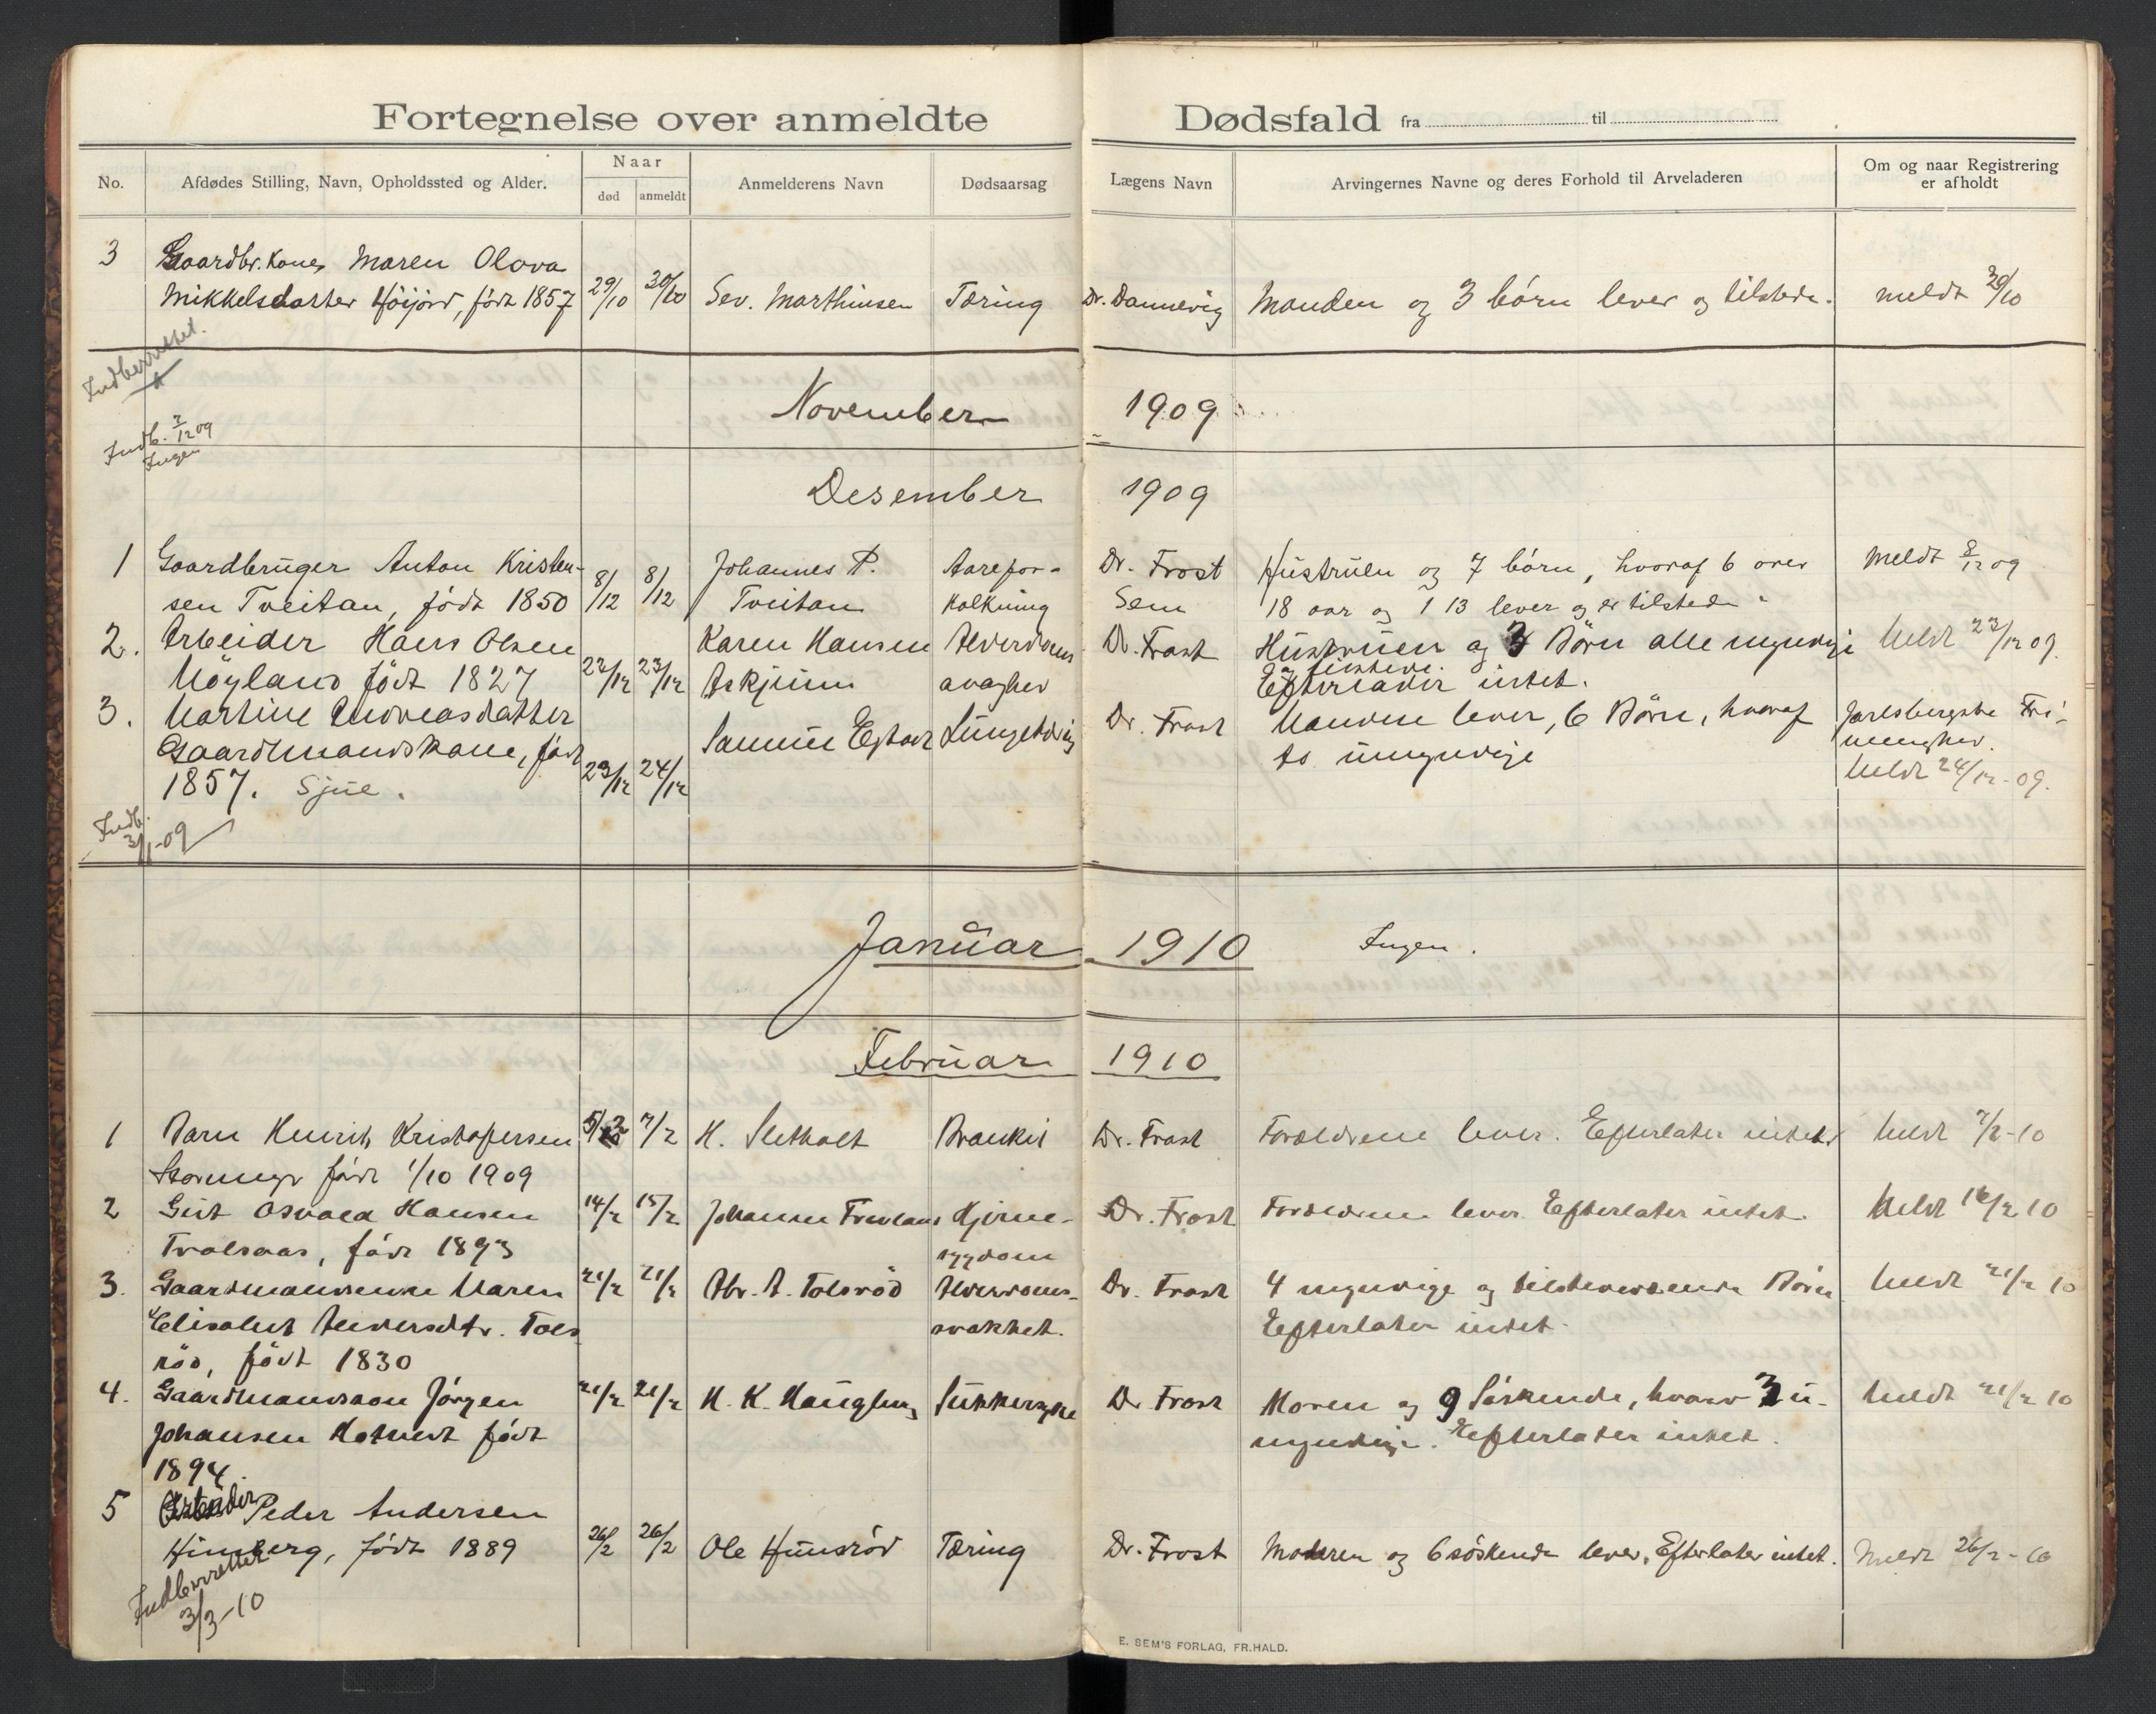 Fortegnelse over anmeldte Dødsfald fra til
No. Afdødes Stilling, Navn, Opholdssted og Alder. Naar død anmeldt Anmelderens Navn Dødsaarsag Lægens Navn Arvingernes Navne og deres Forhold til Arveladeren Om og naar Registrering er afholdt
3 Gaardbr. kone, Maren Olava
Mikkelsdatter Höijord, födt 1857 29/10 30/10 Sev. Marthinsen Tæring Dr. Dannevig Manden og 3 börn lever og tilstede. meldt 30/10
Indberrettet.
November 1909
Indb. 3/12 09
Ingen
Desember 1909
1 Gaardbruger Anton Kristen- Johannes P. Aarefor- Dr. Frost Hustruen og 7 börn, hvoraf 6 over meldt 8/12 09
sen Tveitan, födt 1850 8/12 8/12 Tveitan kalkning Sem 18 aar og 1 13 lever og er tilstede.
2. Arbeider Hans Olsen Karen Hansen Alderdoms- Dr. Frost Hustruen og 3 Börn alle myndige Meldt 23/12 09.
og tilstede.
Höyland födt 1827 22/12 23/12 Askjum svaghed Efterlader intet.
3. Martine Andreasdatter Dr. Frost Manden lever, 6 Börn, hvoraf Jarlsbergske Fri-
Gaardmandskone, födt Samuel Egtvedt Lungetæring to umyndige menighed.
1857. Sjue. 23/12 24/12 Meldt 24/12-09.
Indb.
3/1-09
Januar 1910 Ingen.
Februar 1910
1 Barn Henrik Kristofersen 5/2 7/2 H. Sletholt Bronkit Dr. Frost Forældrene lever. Efterlater intet. Meldt 7/2-10
Stormyr födt 1/10 1909
2 Gut Osvald Hansen 14/2 15/2 Johannes Trevland Hjerne- Dr. Frost Forældrene lever. Efterlater intet. Meldt 16/2 10
Trolsaas, födt 1893 sygdom
3. Gaardmandsenke Maren 21/2 21/2 Abr. A. Tolsröd Alderdoms- Dr. Frost 4 myndige og tilstedeværende Börn Meldt 21/2 10
Elisabet Andersdtr. Tols- svakhet. Efterlater intet.
röd, födt 1830
4. Gaardmandssön Jörgen 21/2 21/2 H. K. Hauglund Sukkersyke Dr Frost Moren og 9 Söskende, hvorav 3 u- Meldt 21/2 10
Johansen födt myndige. Efterlater intet.
1894.
5 Arbeider Peder Andersen
Himberg, födt 1889 26/2 26/2 Ole Hunsröd Tæring Dr. Frost Moderen og 6 söskende lever, Efterlater intet. Meldt 26/2-10
Indberrettet
3/3-10
E. SEM'S FORLAG, FR.HALD.